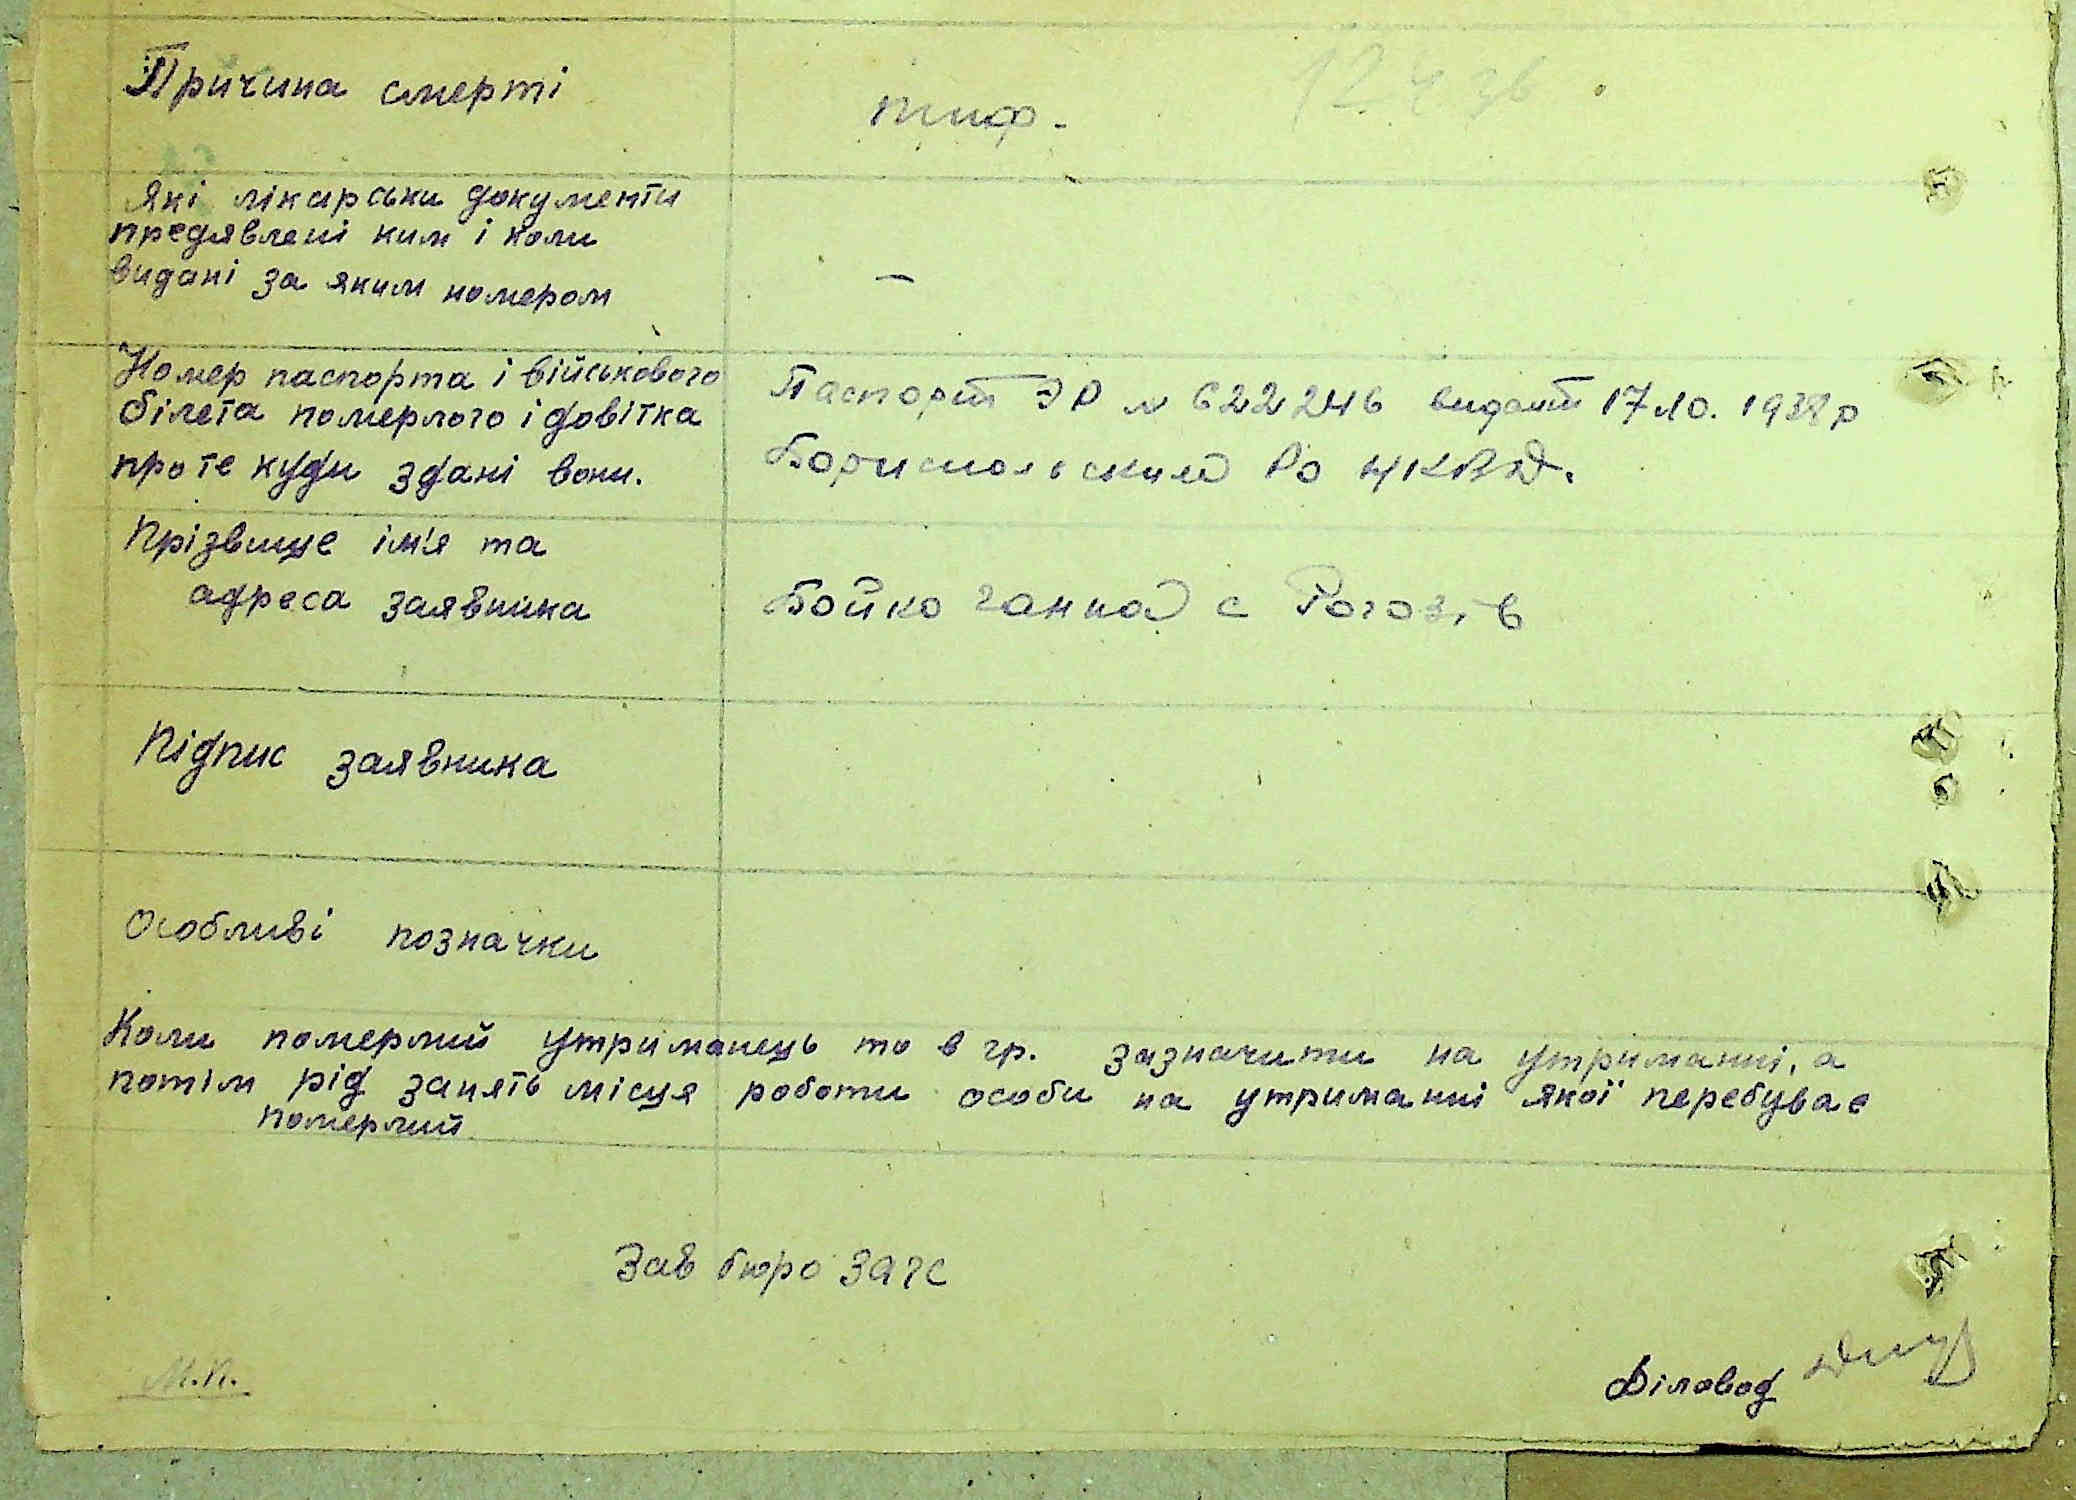 Причина смерті
тиф.
Які лікарськи документи
предявлені ким і коли
видані за яким номером
–
Номер паспорта і військового
білета померлого і довітка
про те куди здані вони.
Паспорт ЭР № 622246 видант 17/10. 1938 р
Бориспольским Ро НКВД.
Прізвище ім'я та
адреса заявника
Бойко Ганна с Рогозів
Підпис заявника
Особливі позначки
Коли померлий утриманець то в гр. зазначити на утриманні, а
потім рід занять місця роботи особи на утриманні якої перебуває
померлий
Зав бюро ЗАГС
М.П.
Діловод